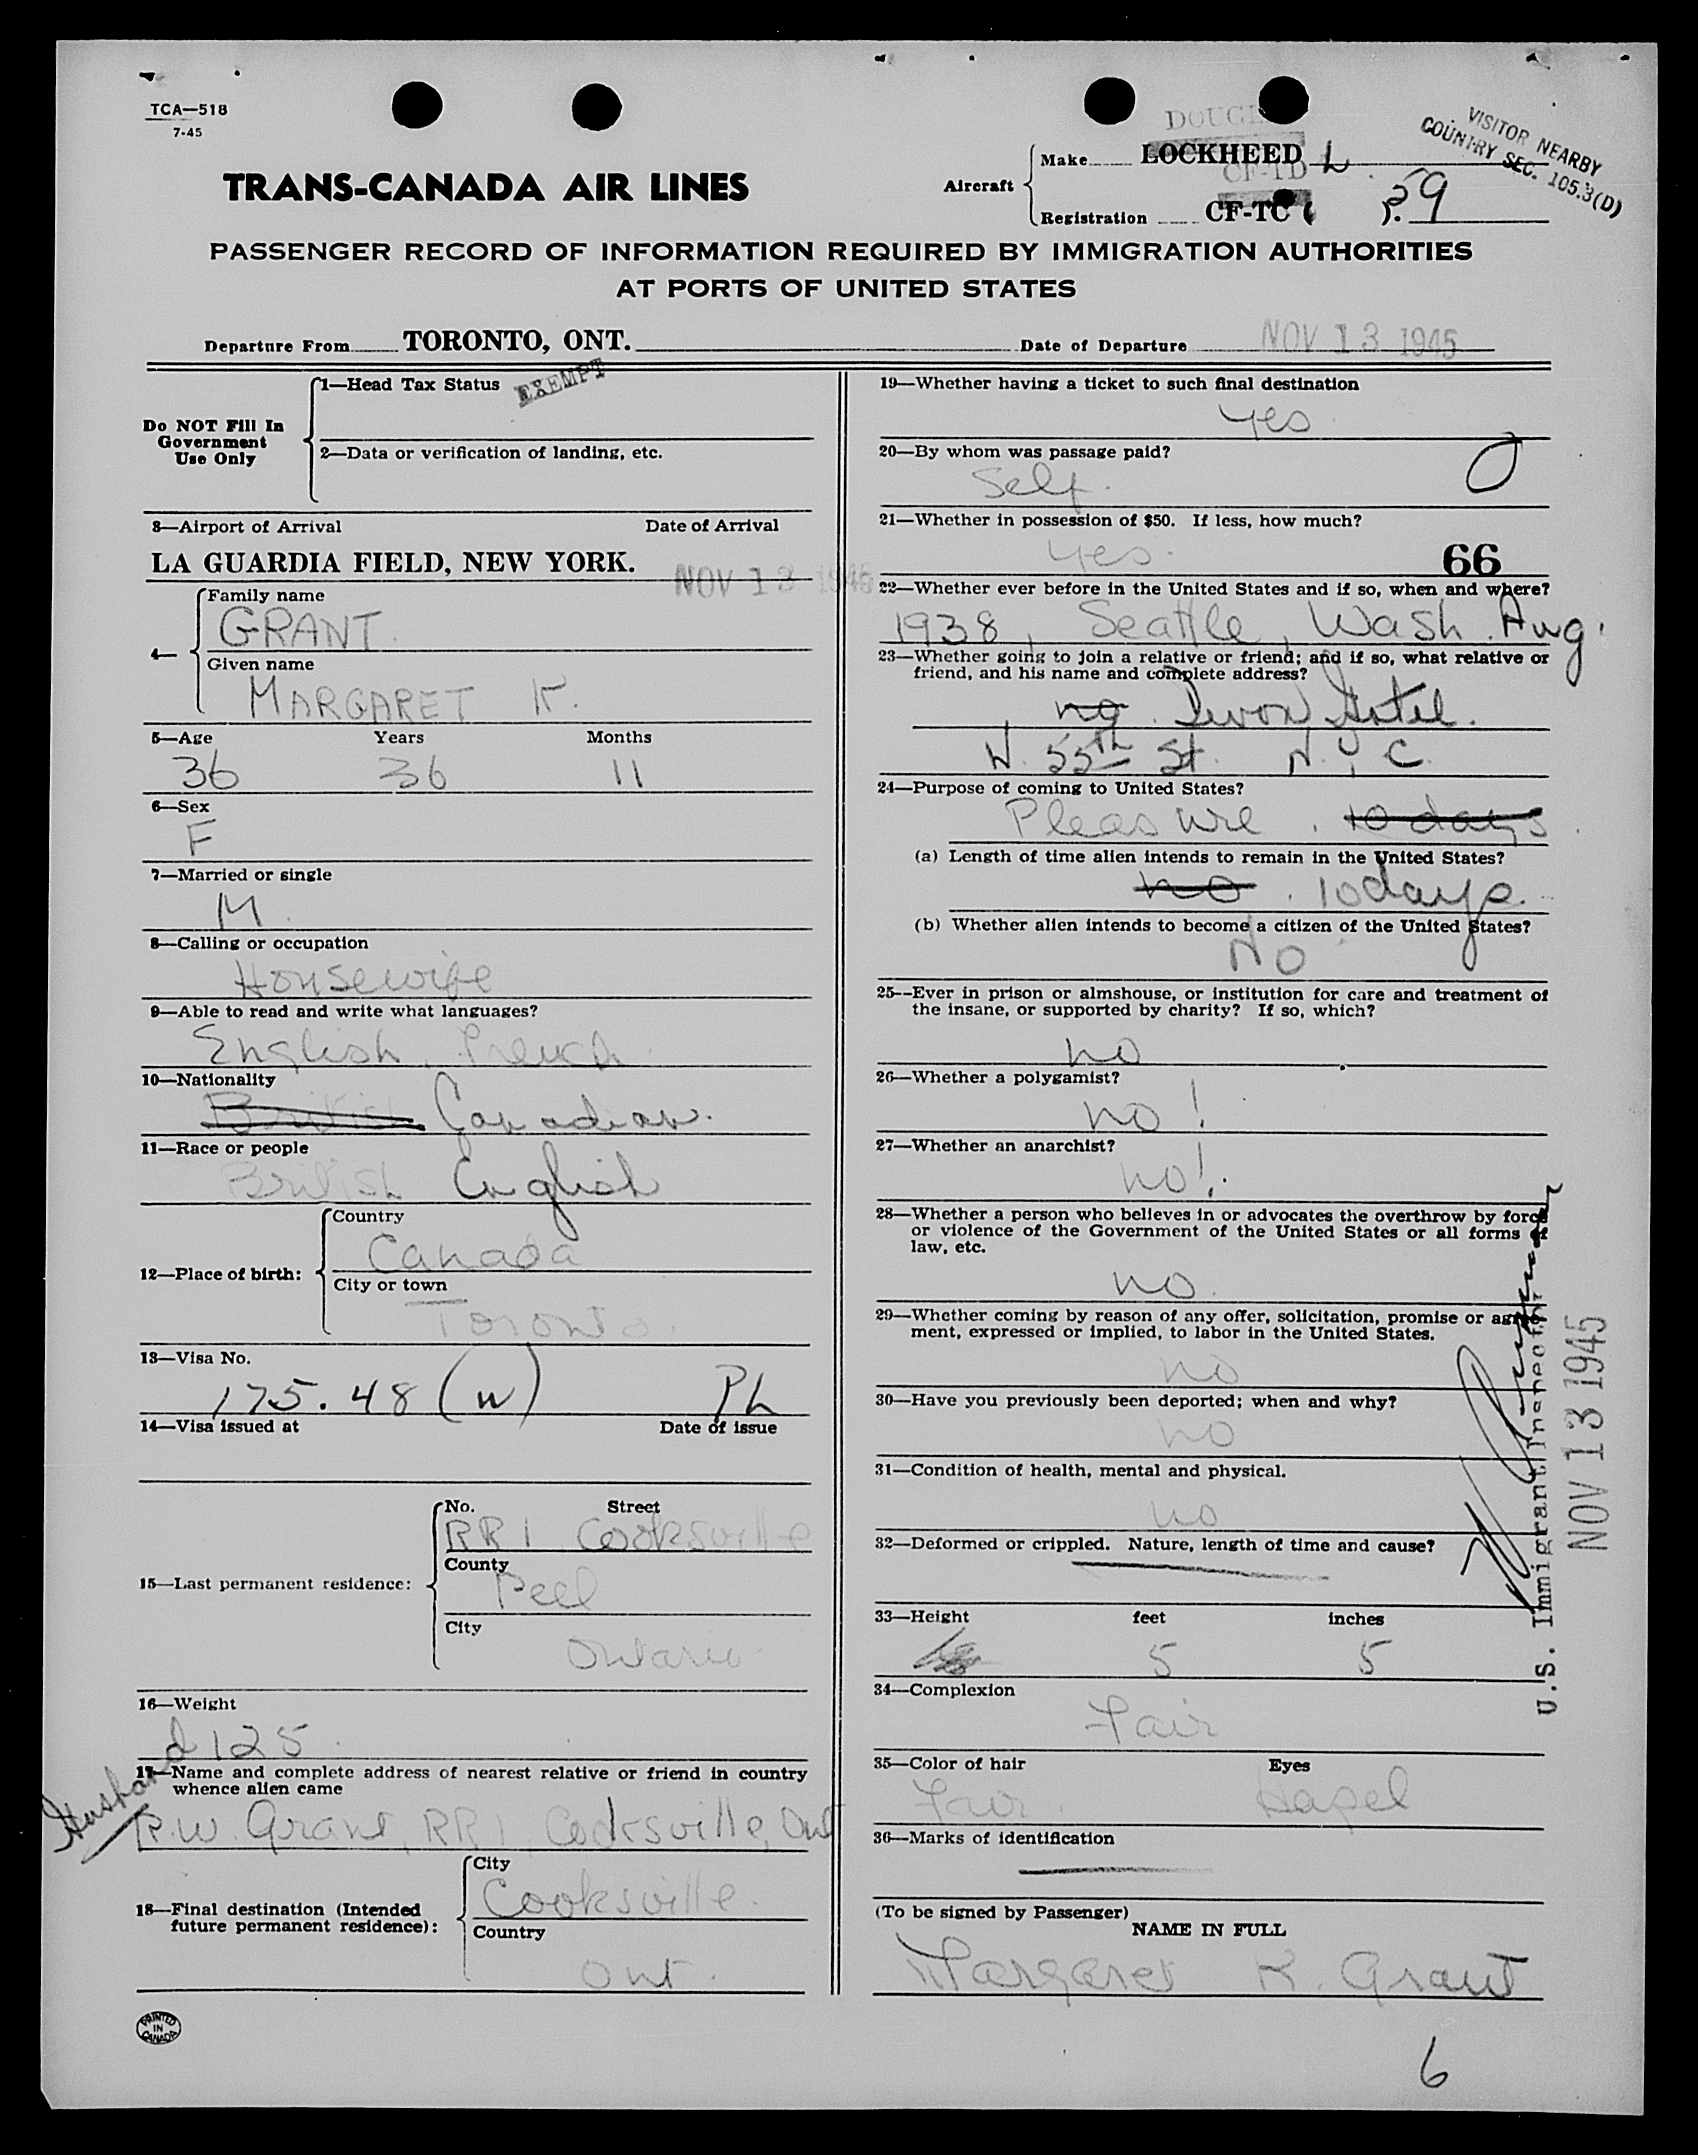 TCA—518
7-45
DOUG
Aircraft
Make LOCKHEED L
CF-TD
Registration CF-TC
59
VISITOR NEARBY
COUNTRY SEC. 105.3(D)
TRANS-CANADA AIR LINES
PASSENGER RECORD OF INFORMATION REQUIRED BY IMMIGRATION AUTHORITIES
AT PORTS OF UNITED STATES
Departure From TORONTO, ONT. Date of Departure NOV 13 1945
Do NOT Fill In
Government
Use Only
1—Head Tax Status EXEMPT
2—Data or verification of landing, etc.
3—Airport of Arrival Date of Arrival
LA GUARDIA FIELD, NEW YORK. NOV 13 1945
4—
Family name
GRANT.
Given name
MARGARET K.
5—Age Years Months
36 36 11
6—Sex
F
7—Married or single
M.
8—Calling or occupation
Housewife
9—Able to read and write what languages?
English, French
10—Nationality
British Canadian.
11—Race or people
British English
12—Place of birth:
Country
Canada
City or town
Toronto.
13—Visa No.
175.48 (W) Ph
14—Visa issued at Date of issue
15—Last permanent residence:
No. Street
RR 1 Cooksville
County
Peel
City
Ontario
16—Weight
125
Husband
17—Name and complete address of nearest relative or friend in country
whence alien came
R.W. Grant, RR 1 Cooksville, Ont
18—Final destination (Intended
future permanent residence):
City
Cooksville.
Country
Ont.
PRINTED
IN
CANADA
19—Whether having a ticket to such final destination
yes
20—By whom was passage paid?
Self. 0
21—Whether in possession of $50. If less, how much?
yes. 66
22—Whether ever before in the United States and if so, when and where?
1938, Seattle, Wash. Aug.
23—Whether going to join a relative or friend; and if so, what relative or
friend, and his name and complete address?
no. Devon Hotel.
W. 55th St. N.Y.C.
24—Purpose of coming to United States?
Pleasure. 10 days.
(a) Length of time alien intends to remain in the United States?
no. 10 days.
(b) Whether alien intends to become a citizen of the United States?
No
25—Ever in prison or almshouse, or institution for care and treatment of
the insane, or supported by charity? If so, which?
no
26—Whether a polygamist?
no!
27—Whether an anarchist?
no!
28—Whether a person who believes in or advocates the overthrow by force
or violence of the Government of the United States or all forms of
law, etc.
no.
29—Whether coming by reason of any offer, solicitation, promise or agree-
ment, expressed or implied, to labor in the United States.
no
30—Have you previously been deported; when and why?
no
31—Condition of health, mental and physical.
no
32—Deformed or crippled. Nature, length of time and cause?
33—Height feet inches
5 5
34—Complexion
Fair
35—Color of hair Eyes
Fair. Hazel
36—Marks of identification
(To be signed by Passenger)
NAME IN FULL
Margaret K. Grant
U.S. Immigrant Inspector
NOV 13 1945
6